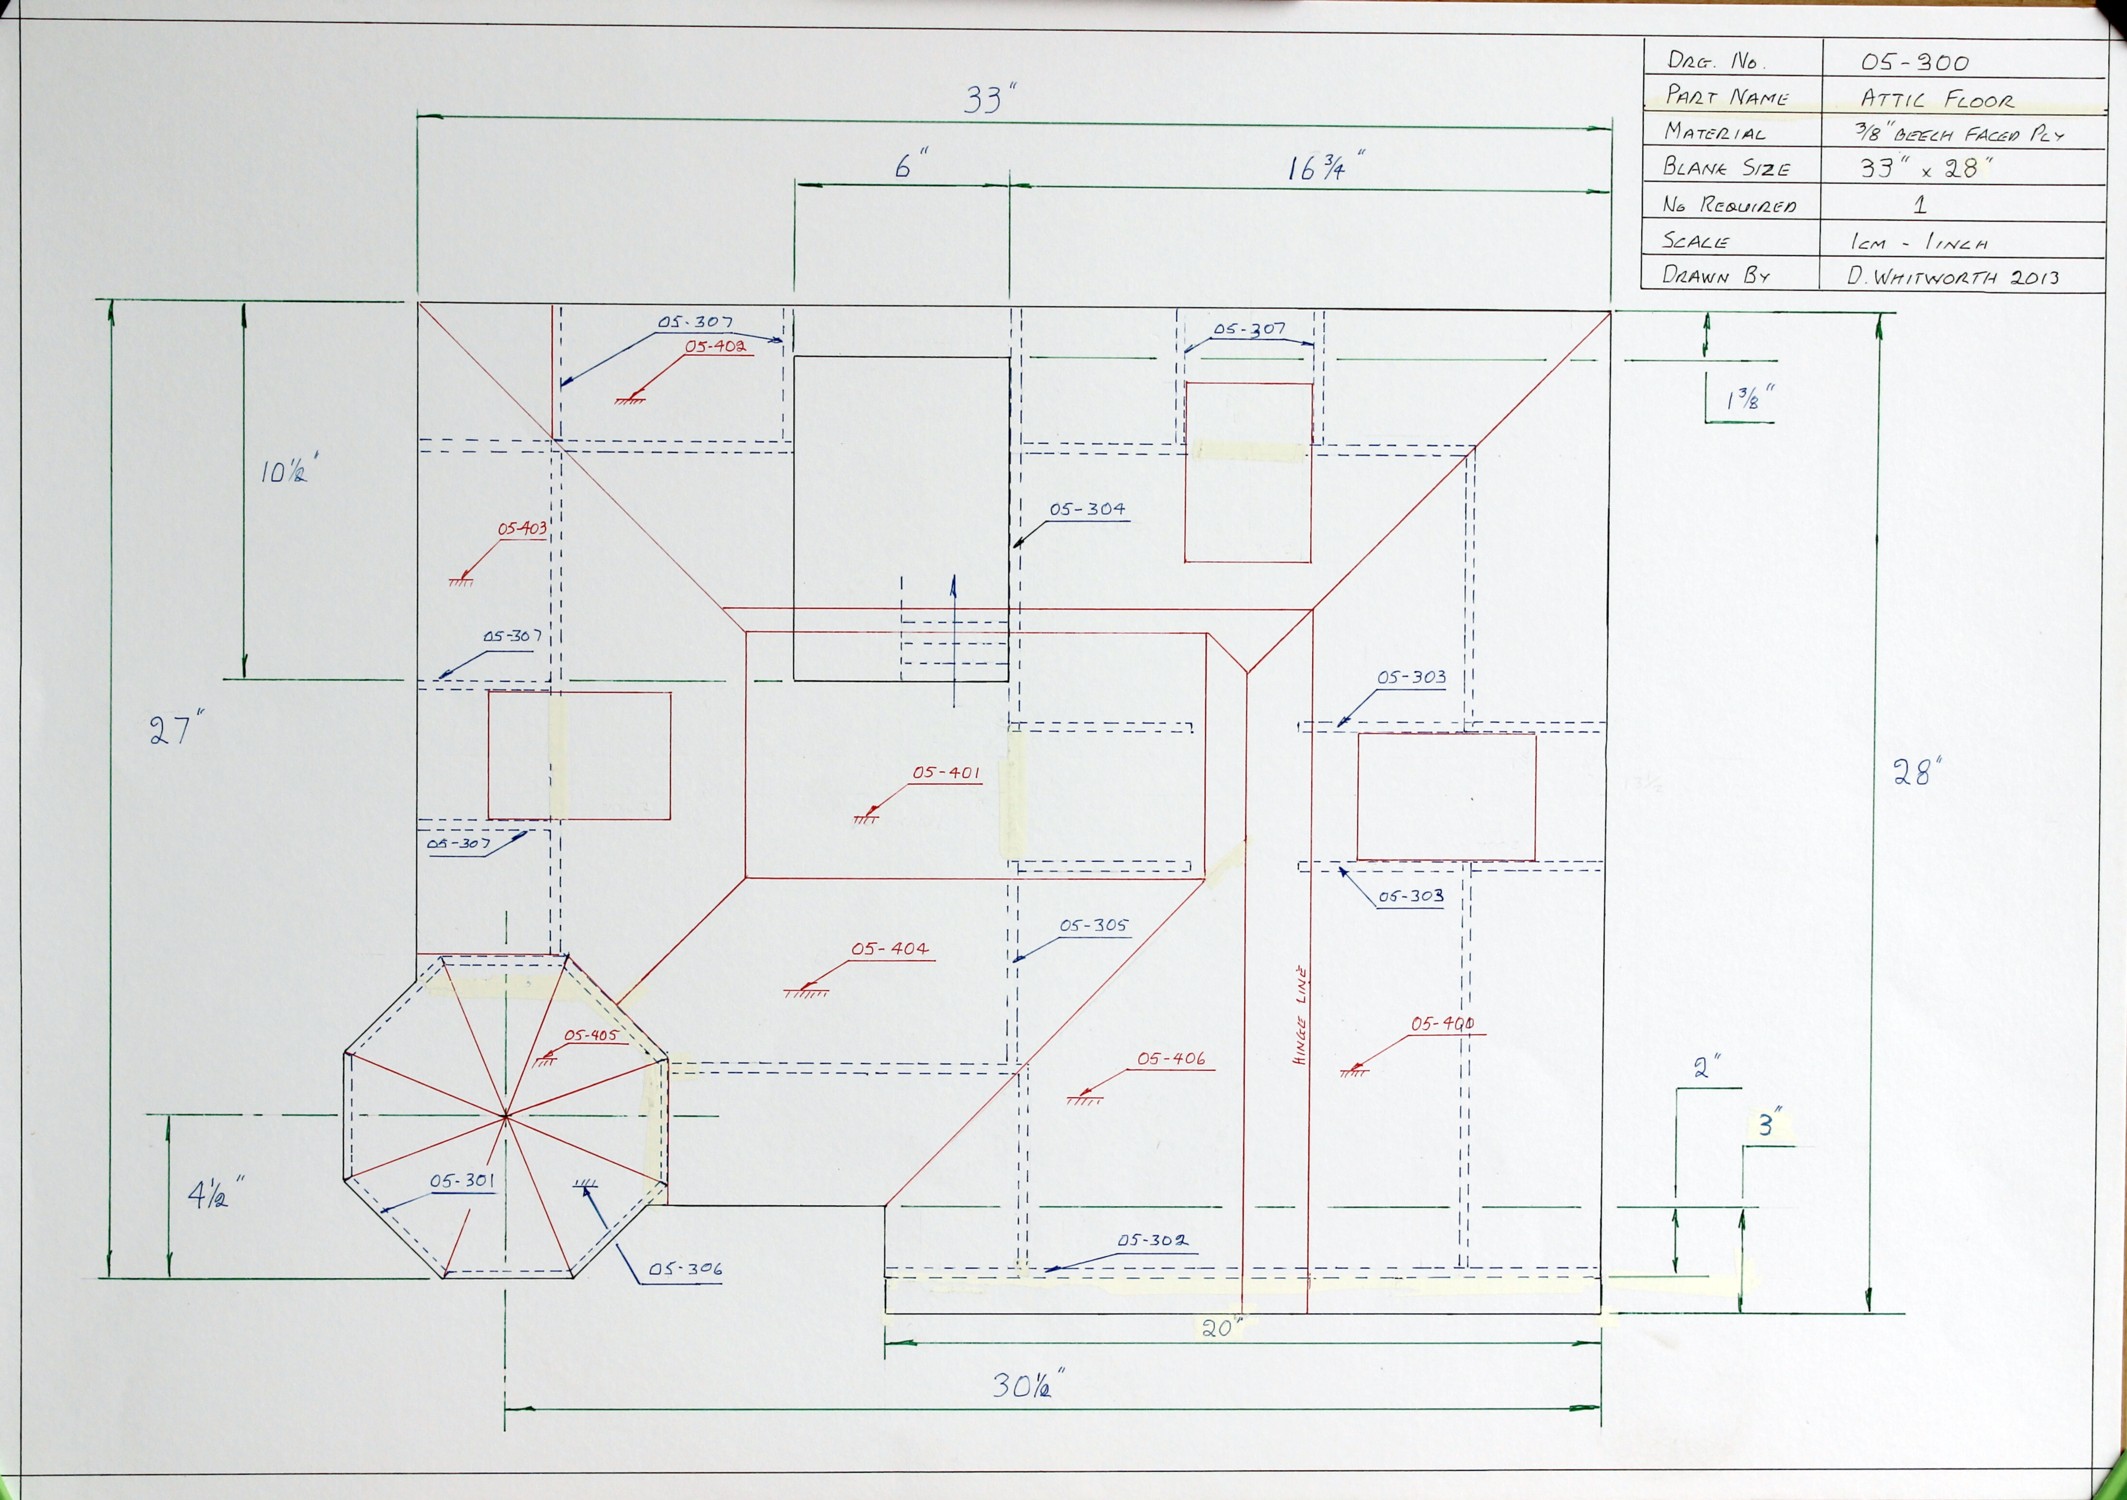 DRG. NO. 05-300
PART NAME ATTIC FLOOR
MATERIAL 3/8" BEECH FACED PLY
BLANK SIZE 33" x 28"
NO REQUIRED 1
SCALE 1CM - 1INCH
DRAWN BY D. WHITWORTH 2013
33"
6"
16 3/4"
05-307
05-402
05-307
1 3/8"
10 1/2"
05-304
05-403
05-307
05-303
27"
05-401
28"
05-307
05-303
05-305
05-404
HINGE LINE
05-400
05-405
05-406
2"
3"
05-301
4 1/2"
05-302
05-306
20"
30 1/2"